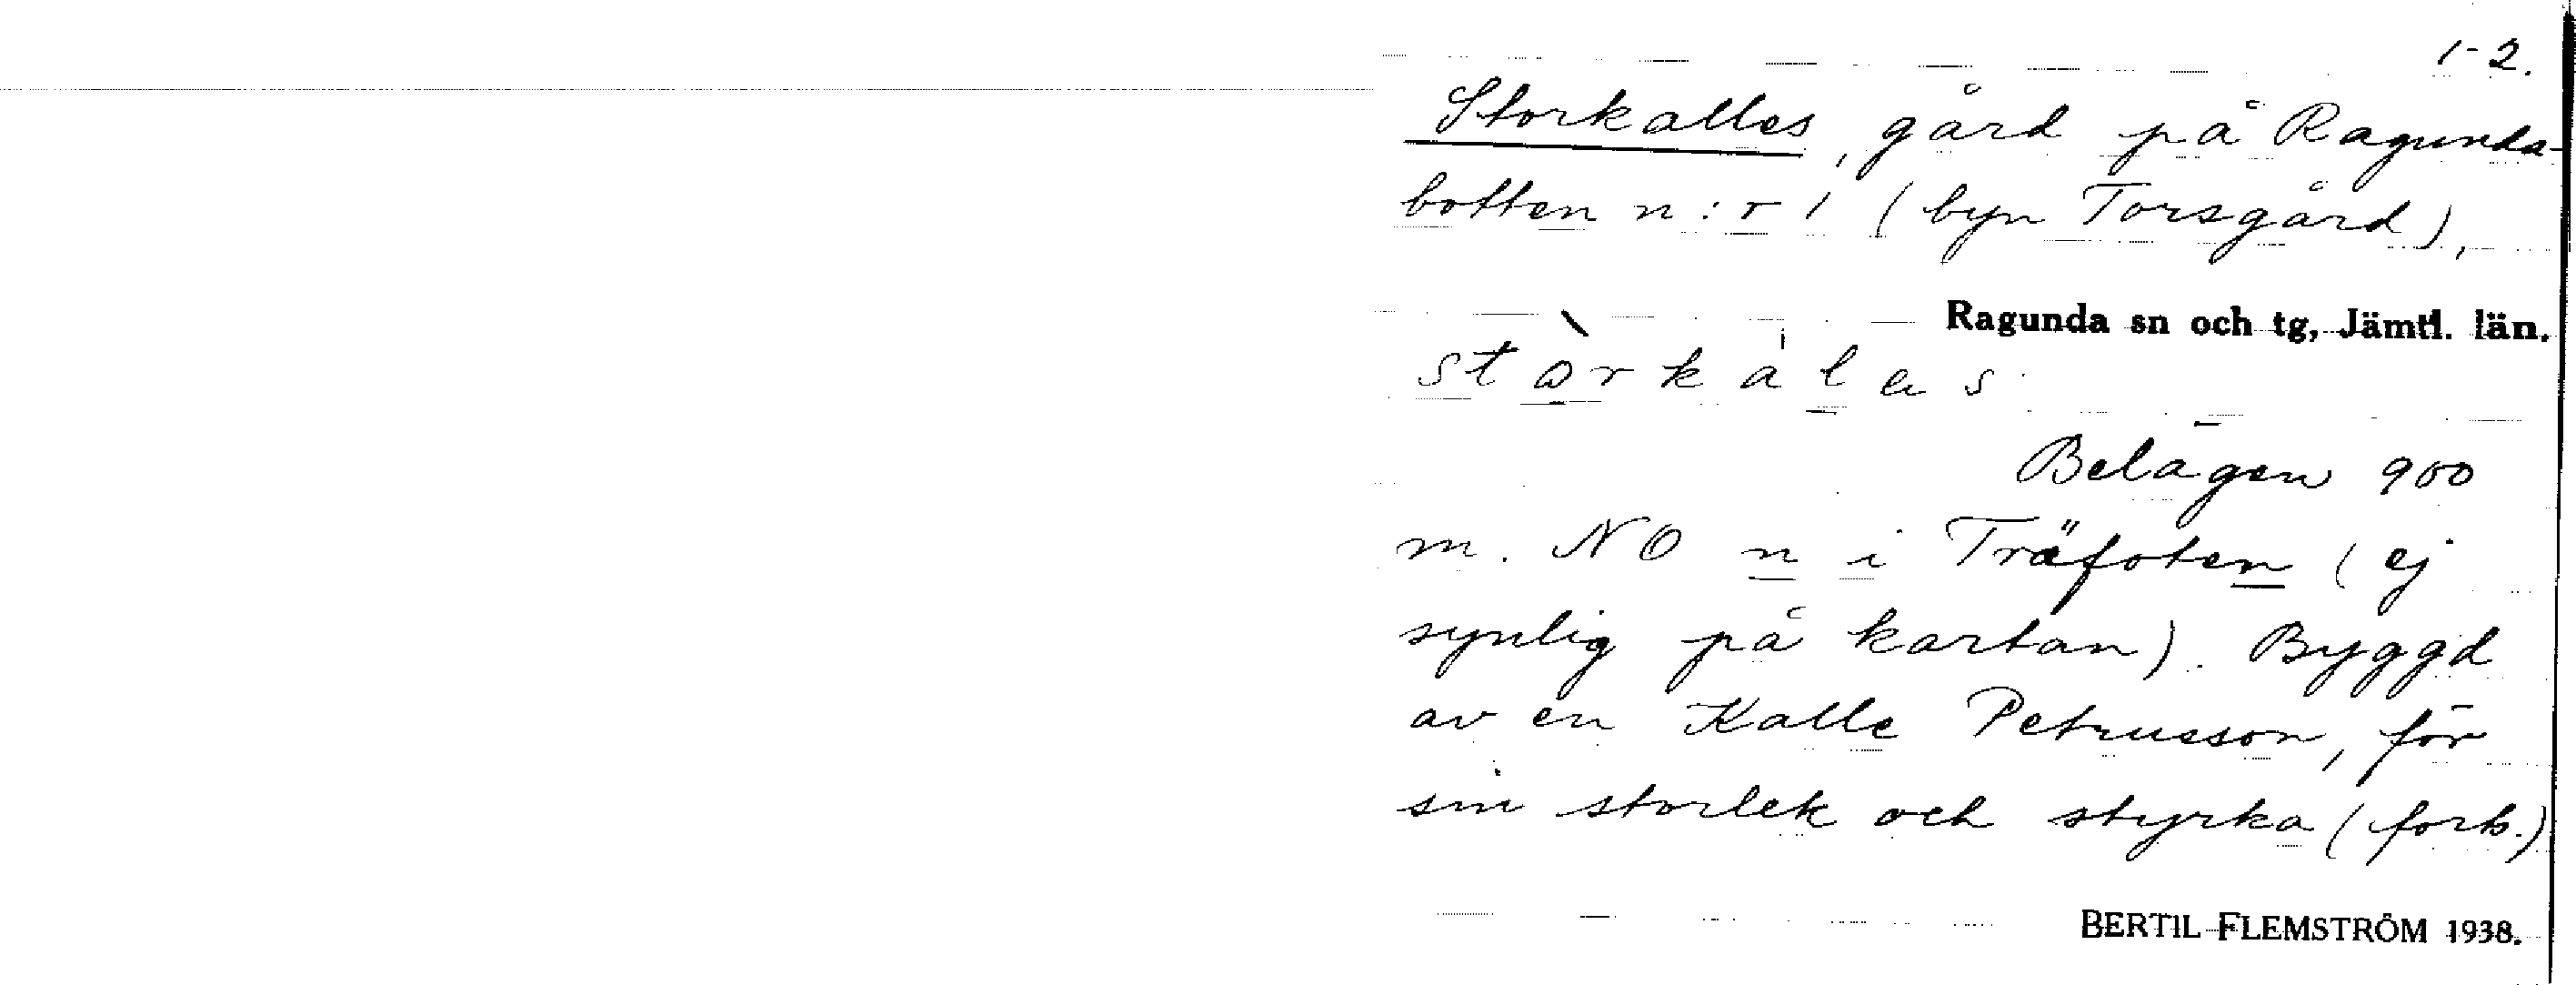 1-2.
Storkalles, gård på Ragunda-
botten n:r 1 (byn Torsgård),
Ragunda sn och tg, Jämtl. län.
Belägen 900
m. NO n i Träfoten (ej
synlig på kartan). Byggd
av en Kalle Petrusson, för
sin storlek och styrka (forts.)
BERTIL FLEMSTRÖM 1938.